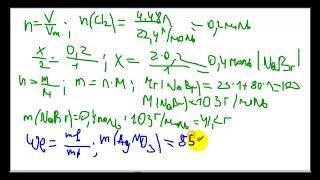 n = V/Vm ; n(Cl2) = 4,48л / 22,4 л/моль = 0,2 моль
x/2 = 0,2/1 ; x = 2·0,2/1 = 0,4 моль (NaBr)
n = m/M ; m = n·M ; Mr(NaBr) = 23·1+80·1=103
M(NaBr) = 103 г/моль
m(NaBr) = 0,4 моль · 103 г/моль = 41,2 г
ωв = mв/mр ; m(AgNO3) = 85